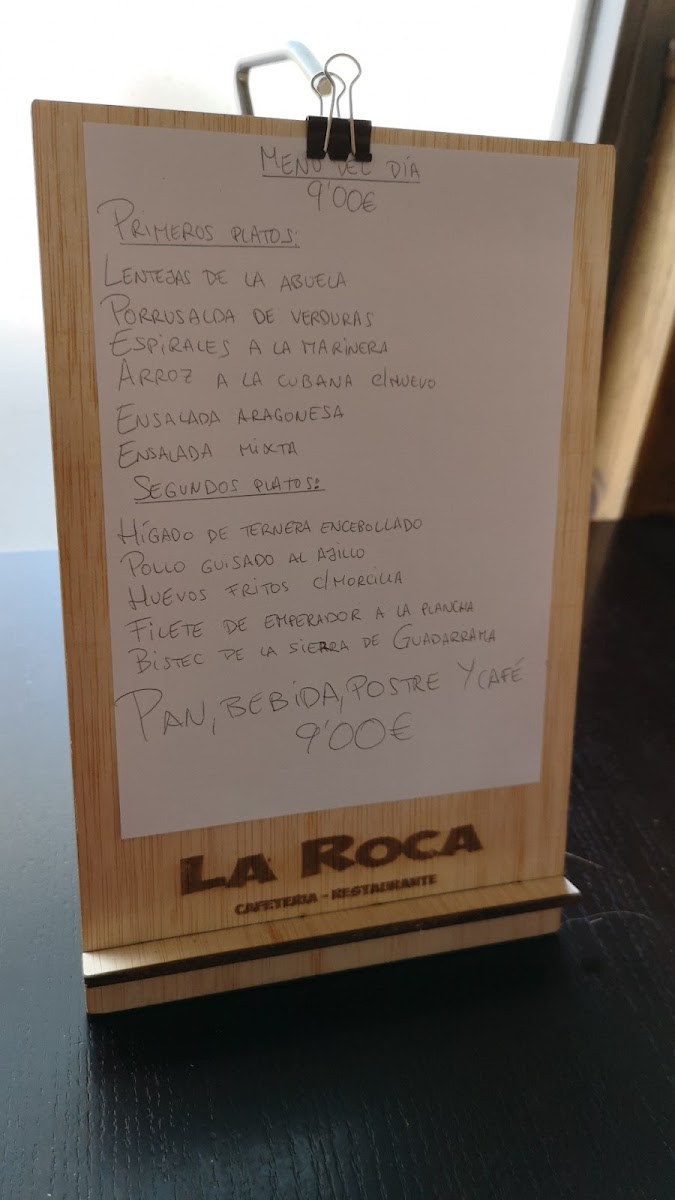 MENÚ DEL DÍA
9'00€
PRIMEROS PLATOS:
LENTEJAS DE LA ABUELA
PORRUSALDA DE VERDURAS
ESPIRALES A LA MARINERA
ARROZ A LA CUBANA C/HUEVO
ENSALADA ARAGONESA
ENSALADA MIXTA
SEGUNDOS PLATOS:
HÍGADO DE TERNERA ENCEBOLLADO
POLLO GUISADO AL AJILLO
HUEVOS FRITOS C/MORCILLA
FILETE DE EMPERADOR A LA PLANCHA
BISTEC DE LA SIERRA DE GUADARRAMA
PAN, BEBIDA, POSTRE Y CAFÉ
9'00€
LA ROCA
CAFETERIA - RESTAURANTE